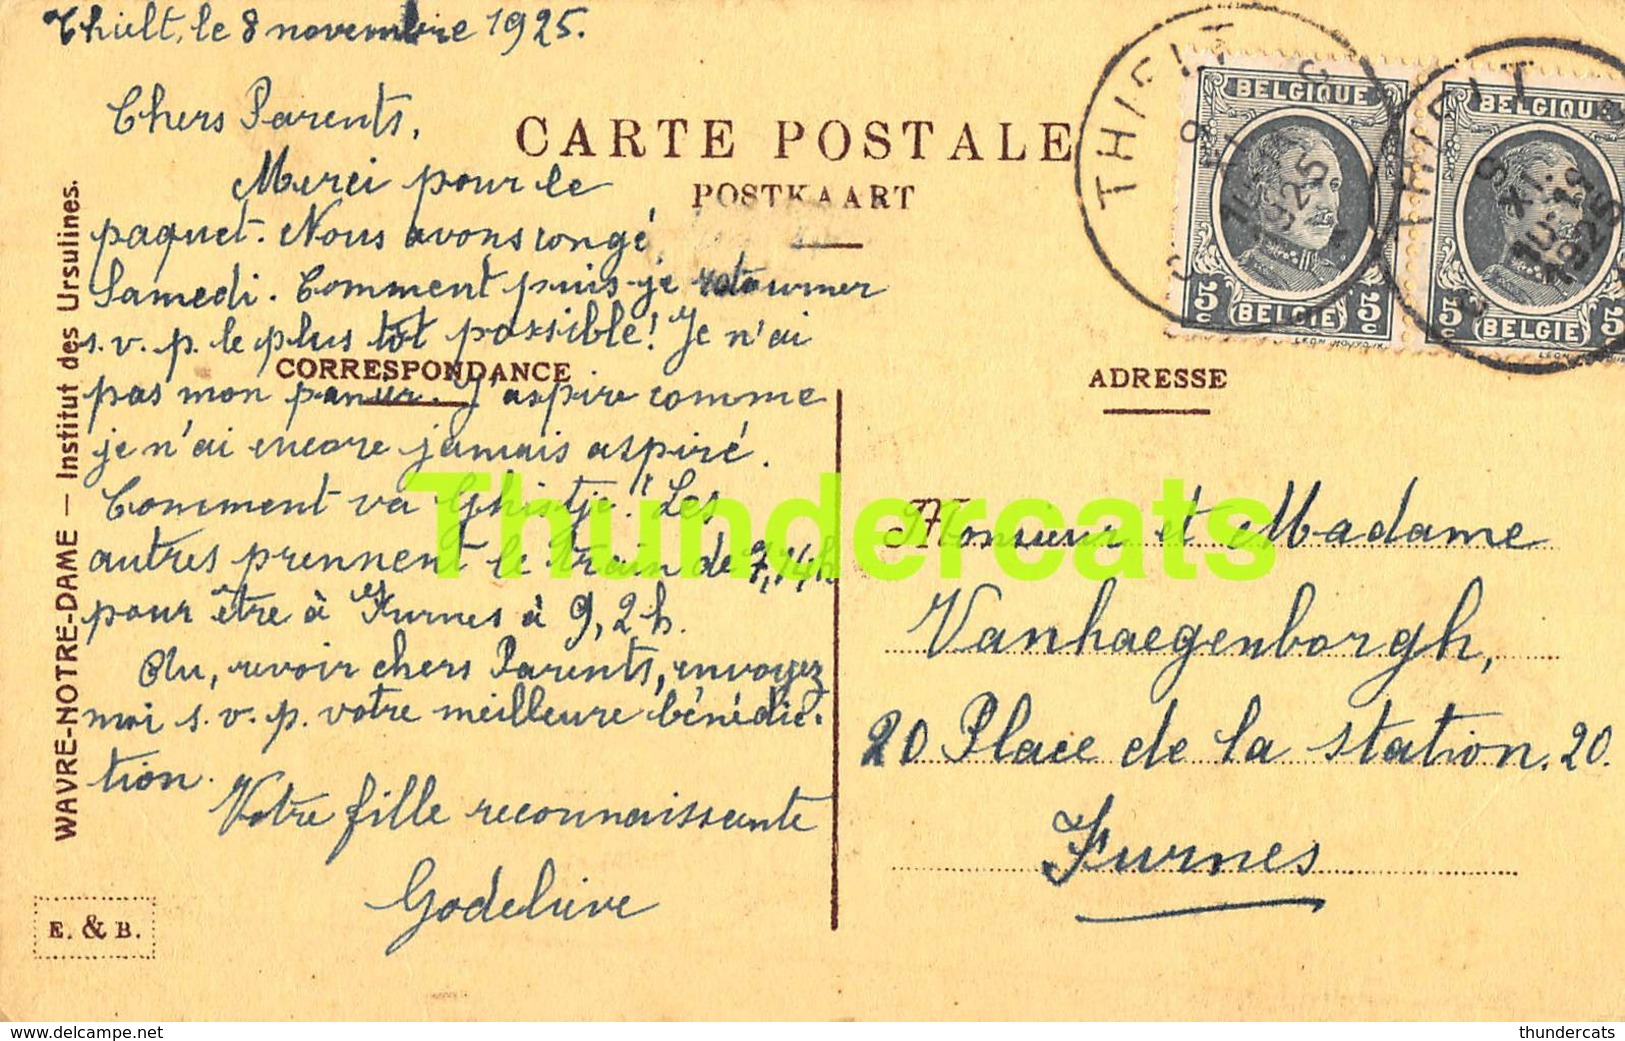 Thielt, le 8 novembre 1925.
Chers Parents,
CARTE POSTALE
POSTKAART
Merci pour le
paquet. Nous avons congé
Samedi. Comment puis-je retourner
s. v. p. le plus tôt possible! Je n'ai
CORRESPONDANCE
pas mon panier. J'aspire comme
je n'ai encore jamais aspiré.
Comment va Ghistje! Les
autres prennent le train de 7,14h
pour être à Furnes à 9,2h.
Au, revoir chers Parents, envoyez
moi s. v. p. votre meilleure bénédic-
tion.
Votre fille reconnaissante
Godelieve
WAVRE-NOTRE-DAME — Institut des Ursulines.
E. & B.
THIELT
1925
BELGIQUE
5c BELGIË 5c
THIELT
8 XI.
1925
BELGIQUE
5c BELGIË 5
ADRESSE
Monsieur et Madame
Vanhaegenborgh,
20 Place de la station. 20.
Furnes
Thundercats
www.delcampe.net
thundercats